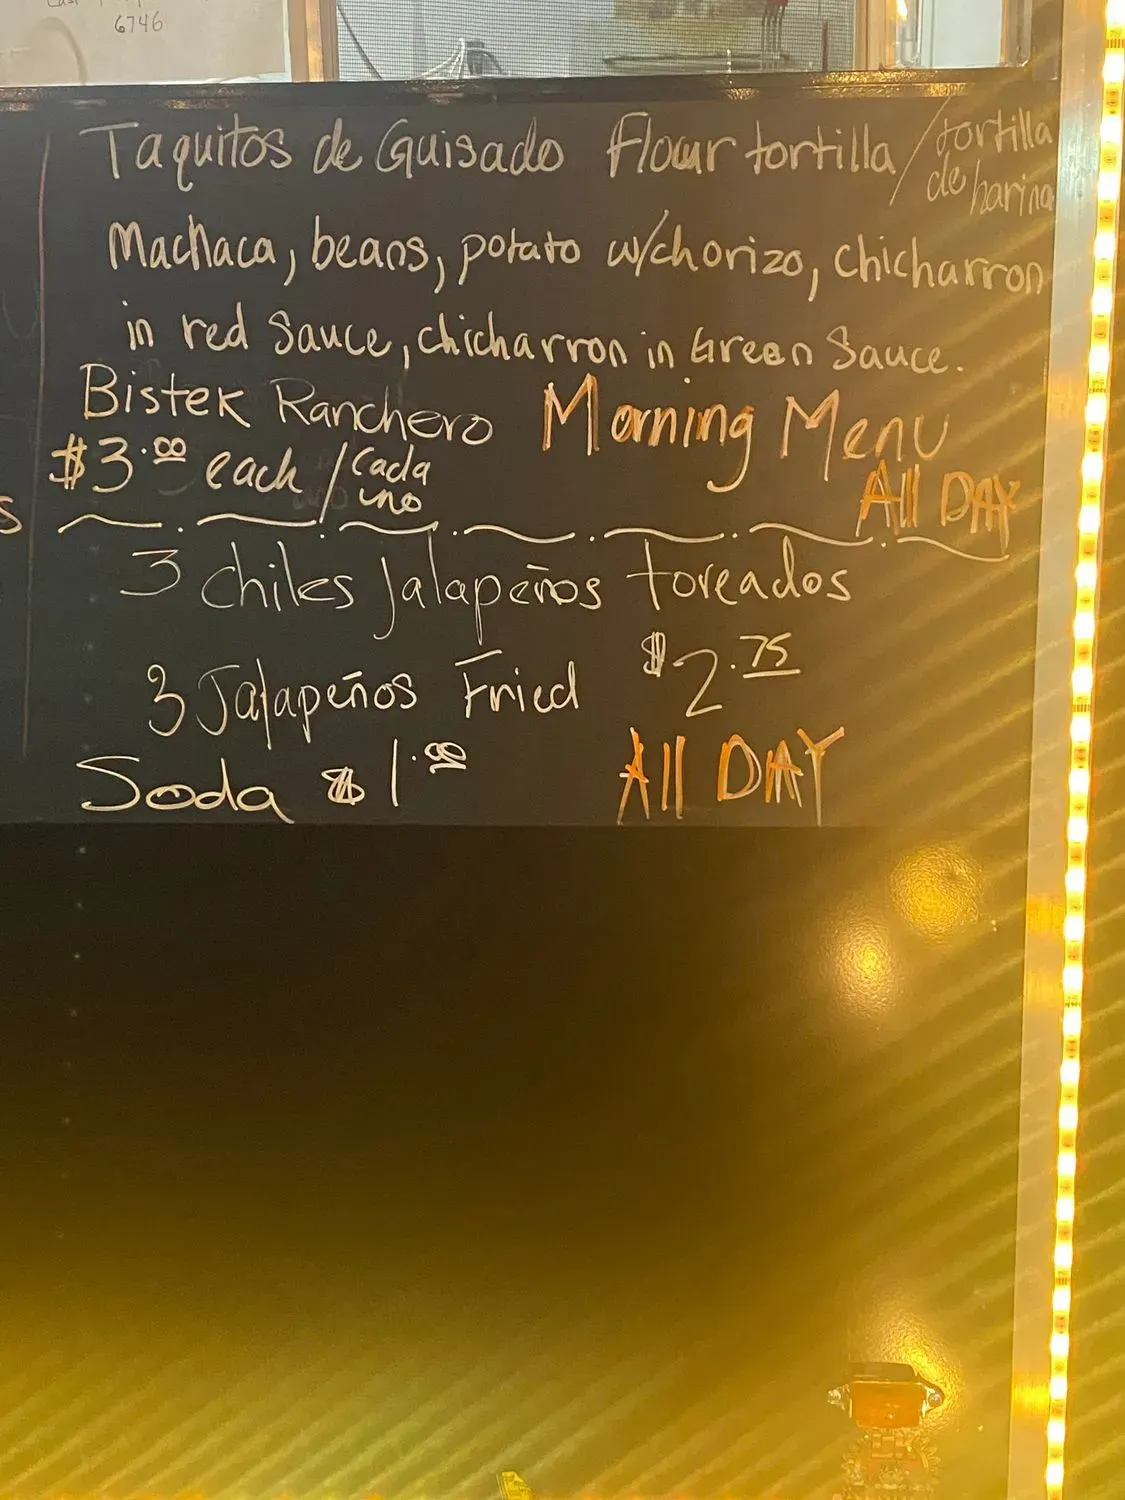 6746
Taquitos de Guisado Flour tortilla / tortilla
de harina
Machaca, beans, potato w/chorizo, chicharron
in red Sauce, chicharron in Green Sauce.
Bistek Ranchero Morning Menu
$3.00 each / cada
uno
All DAY
s
3 chiles Jalapeños toreados
3 Jalapeños Fried $2.75
Soda $1.00 All DAY